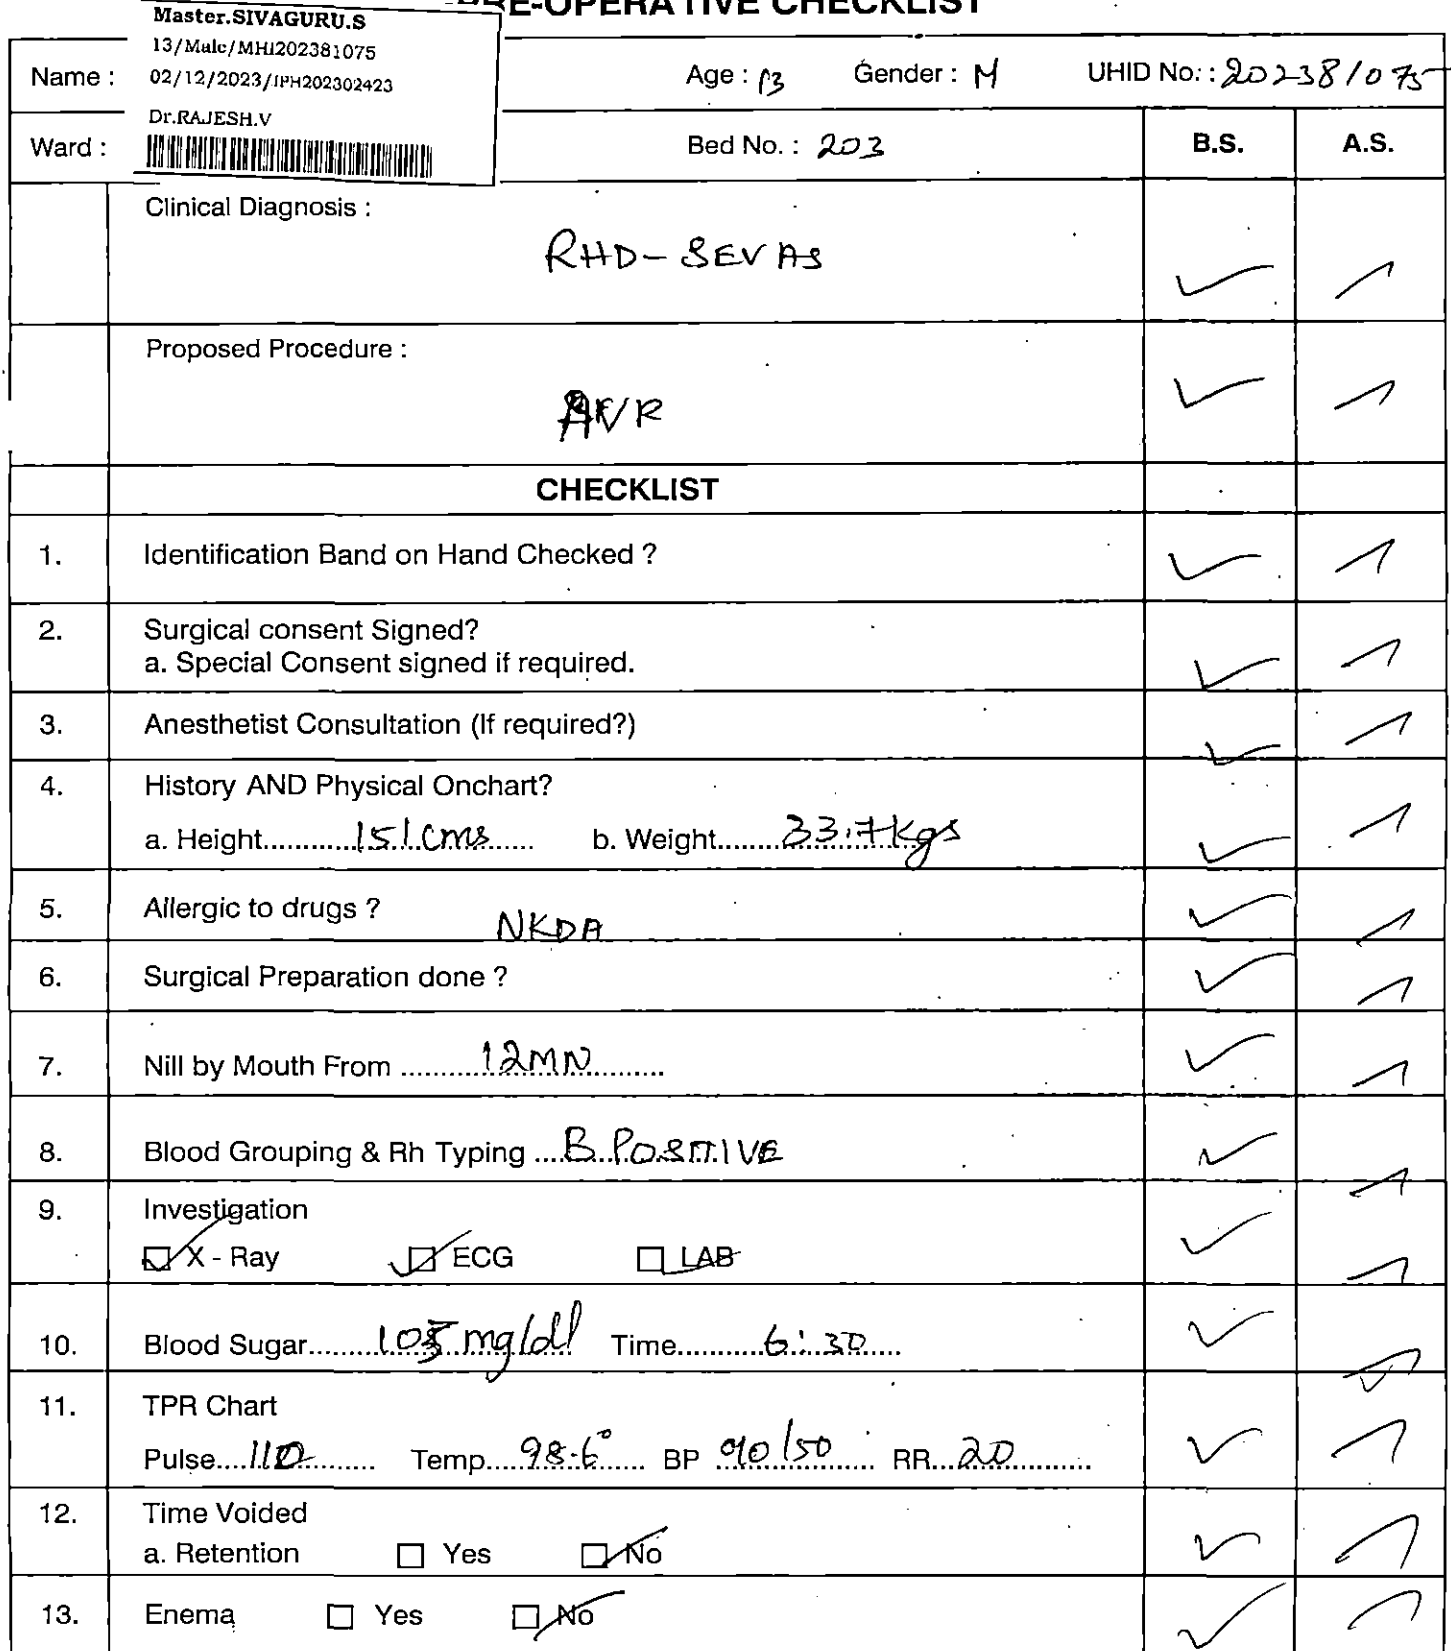 PRE-OPERATIVE CHECKLIST
Master.SIVAGURU.S
13/Male/MHI202381075
02/12/2023/IPH202302423
Dr.RAJESH.V
Name : Age : 13 Gender : M UHID No. : 202381075
Ward : Bed No. : 203 B.S. A.S.
Clinical Diagnosis :
RHD - SEV AS
Proposed Procedure :
AVR
CHECKLIST
1. Identification Band on Hand Checked ?
2. Surgical consent Signed?
a. Special Consent signed if required.
3. Anesthetist Consultation (If required?)
4. History AND Physical Onchart?
a. Height............151.cms...... b. Weight.......33.7kgs
5. Allergic to drugs ? NKDA
6. Surgical Preparation done ?
7. Nill by Mouth From ..........12MN..........
8. Blood Grouping & Rh Typing ....B POSITIVE
9. Investigation
X - Ray ECG LAB
10. Blood Sugar.........105 mg/dl Time...........6:30......
11. TPR Chart
Pulse....110......... Temp.....98.6°...... BP 90/50 RR...20...........
12. Time Voided
a. Retention Yes No
13. Enema Yes No